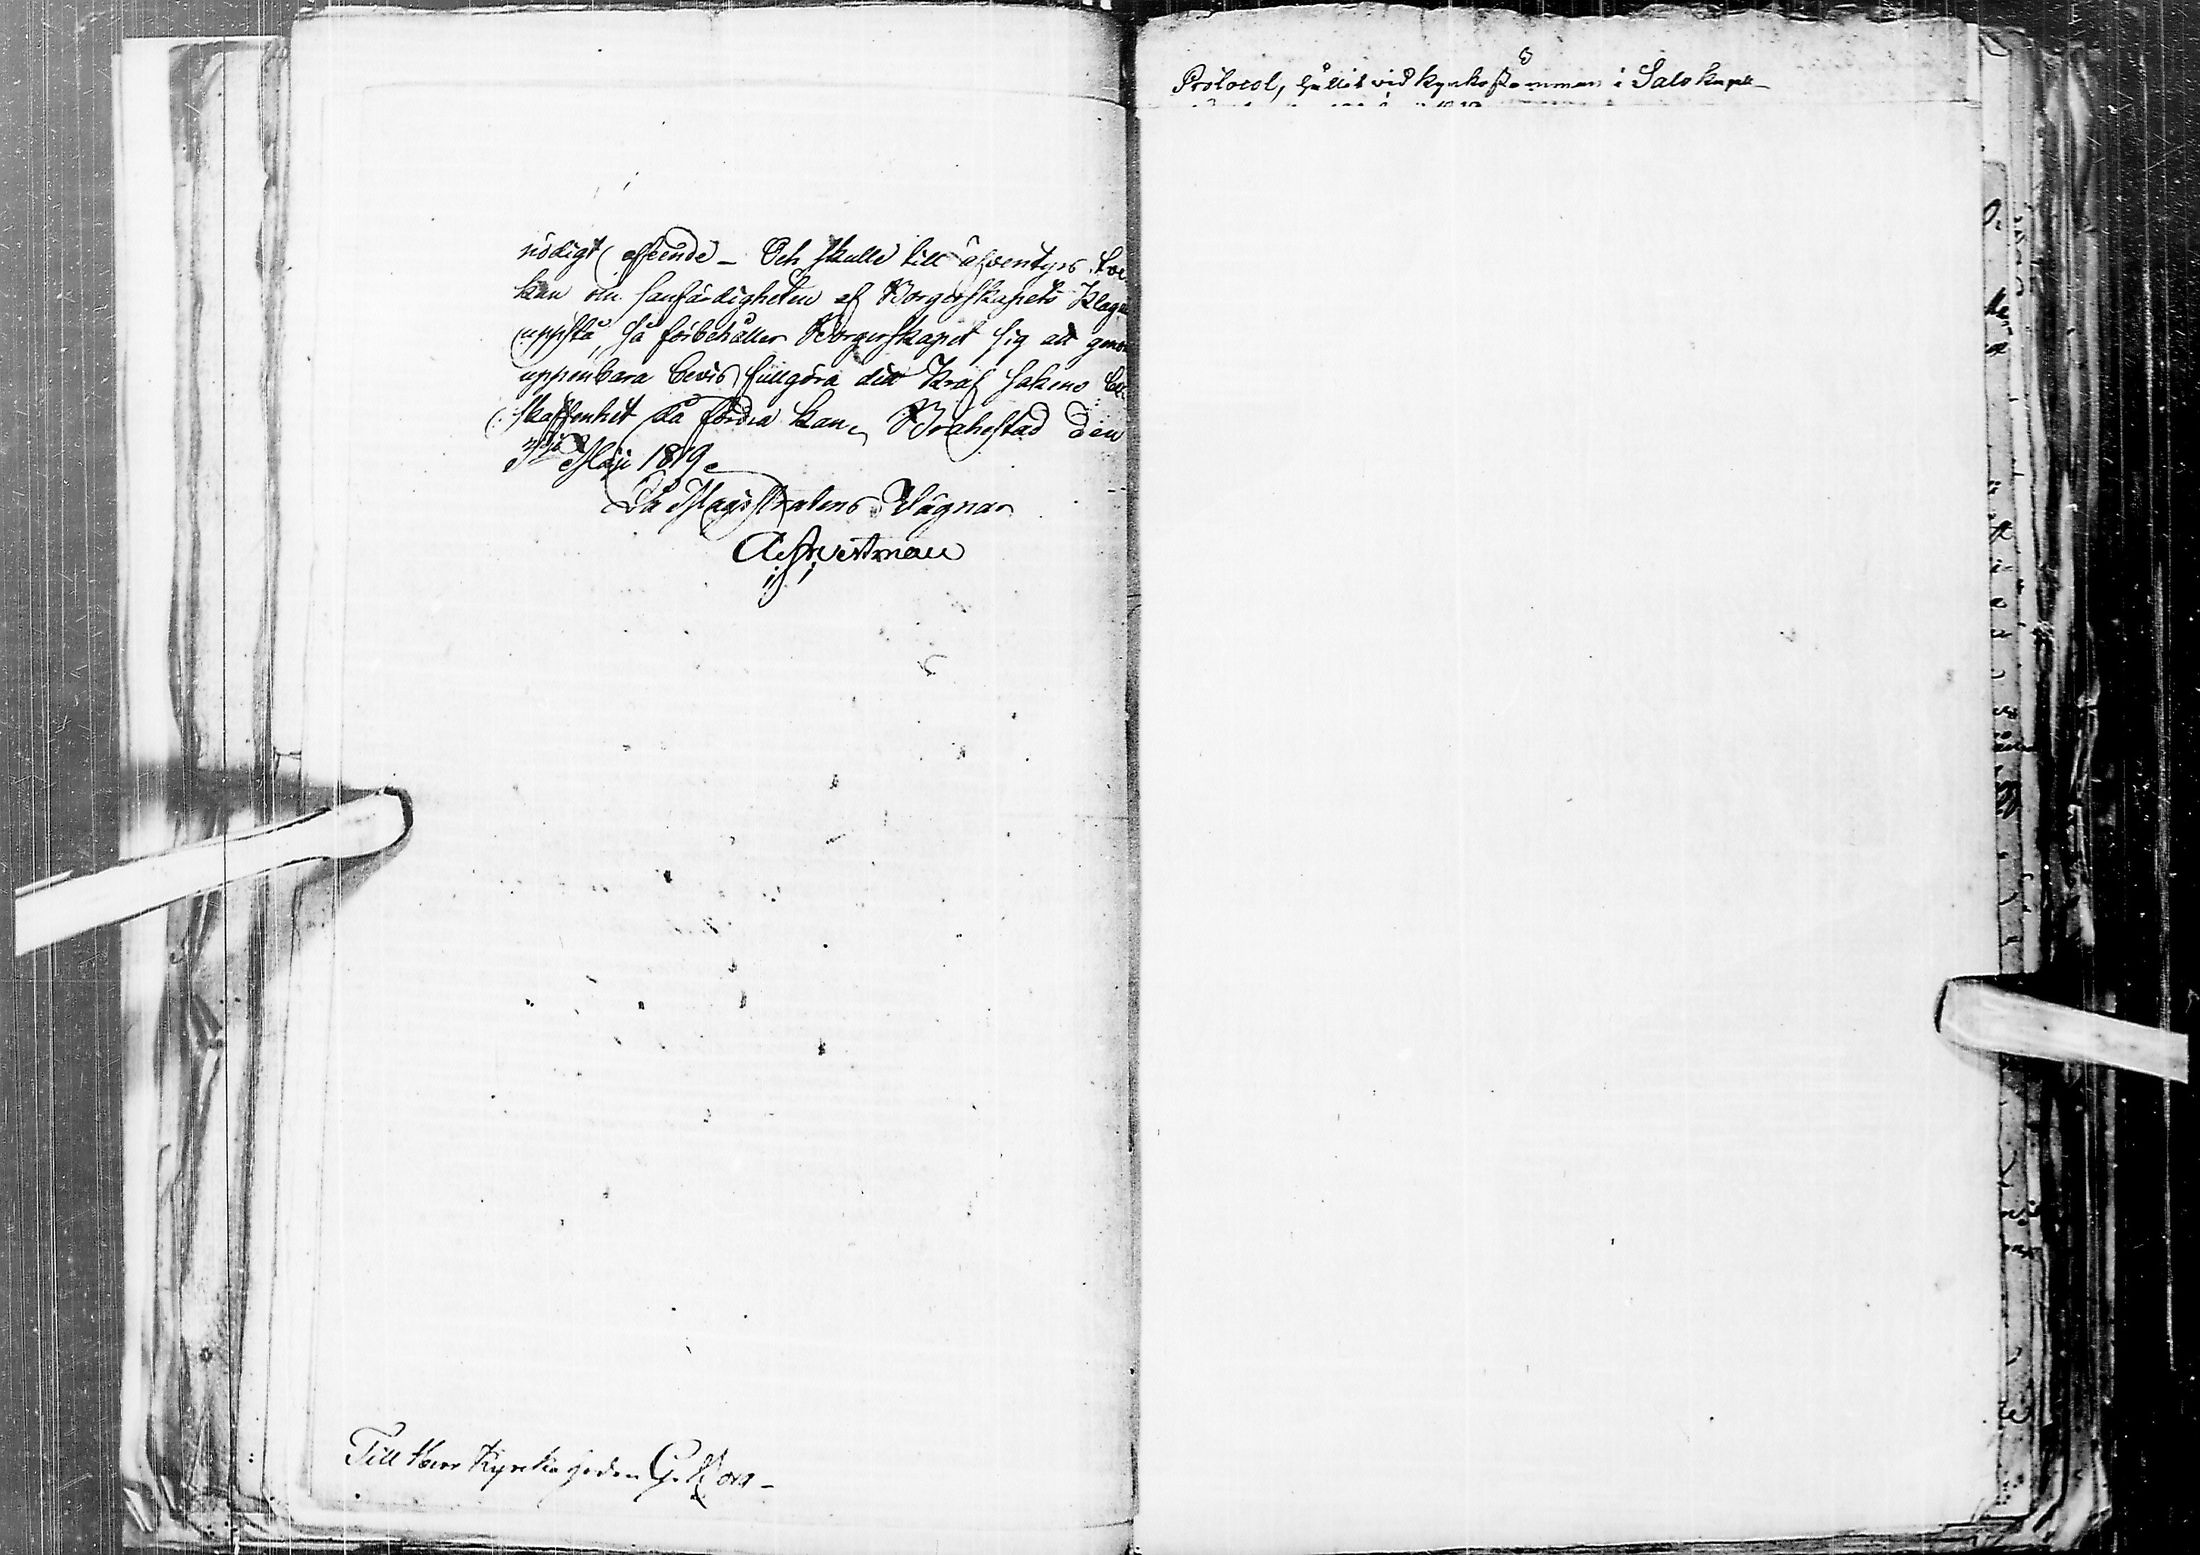 nödigt afseende _ Och skulle till äfventyrs tve
kan om sanfärdigheten af Borgerskapets Klag
uppstå, så förbehåller Borgerskapet sig att genom
uppenbara bevis fullgöra det Kraf sakens be
skaffenhet då fordra kan, Brahestad den
Maji 1819.
På Magistratens Vägnar
Till Herr Kyrkoherden G.
Protocol, hållit vid kyrkostämman i Salo kapell